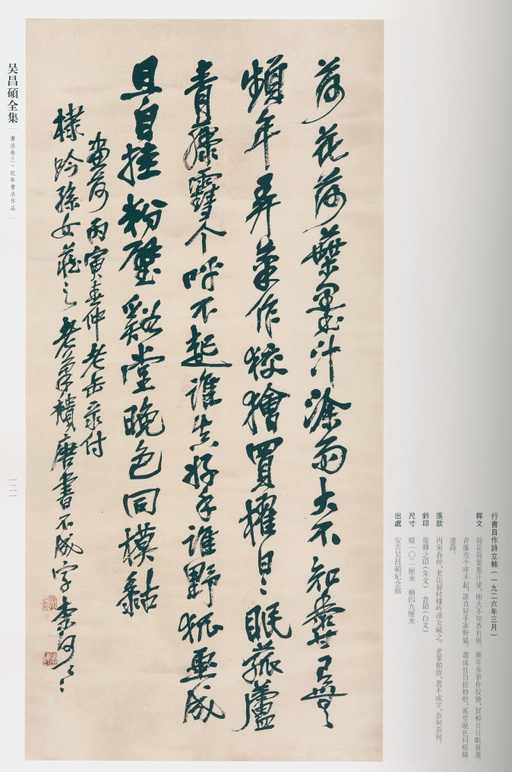 荷花荷葉墨汁塗雨大不知香有無
頻年弄筆作狡獪買櫂日〻眠菰蘆
青藤雪个呼不起誰真好手誰野狐畫成
且自挂粉壁谿堂晚色同模黏
畫荷丙寅春仲老缶录付
棣吟孫女藏之老筆穨唐書不成字柰何〻〻
行書自作詩立軸(一九二六年三月)
釋文 荷花荷葉墨汁塗,雨大不知香有無。頻年弄筆作狡獪,買櫂日日眠菰蘆。
青藤雪个呼不起,誰真好手誰野狐。畫成且自挂粉壁,溪堂晚色同模糊。
畫荷。
落款 丙寅春仲,老缶録付棣吟孫女藏之。老筆頹唐,書不成字,奈何奈何。
鈐印 俊卿之印(朱文) 倉碩(白文)
尺寸 縱一〇二厘米 橫四九厘米
出處 安吉吴昌碩紀念館
吴昌碩全集
書法卷三·紀年書法作品
一二一